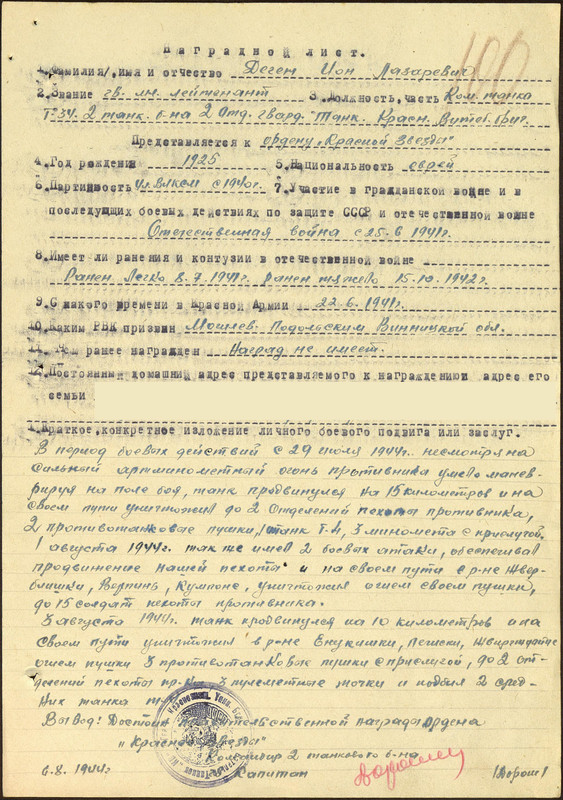 100
Наградной лист.
1. Фамилия/, имя и отчество Деген Ион Лазаревич
2. Звание гв. мл. лейтенант 3. Должность, часть Ком. танка
Т-34. 2 танк. б-на 2 Отд. гвард. Танк. Красн. Витеб. бриг.
Представляется к ордену „Красной Звезды"
4. Год рождения 1925 5. Национальность еврей
6. Партийность чл. ВЛКСМ с 1940г. 7. Участие в гражданской войне и в
последующих боевых действиях по защите СССР и отечественной войне
Отечественная война с 25.6 1941г.
8. Имеет ли ранения и контузии в отечественной войне
Ранен легко 8.7 1941г. ранен тяжело 15.10.1942г.
9. С какого времени в Красной Армии 22.6.1941г.
10. Каким РВК призван Могилев-Подольским Винницкой обл.
11. Чем ранее награжден Наград не имеет.
12. Постоянный домашний адрес представляемого к награждению и адрес его
семьи
1. Краткое конкретное изложение личного боевого подвига или заслуг.
В период боевых действий с 29 июля 1944г. несмотря на
сильный артминометный огонь противника умело манев-
рируя на поле боя, танк продвинулся на 15 километров и на
своем пути уничтожил до 2 отделений пехоты противника,
2 противотанковые пушки, 1 танк Т-4, 3 миномета с прислугой.
1 августа 1944г. так же имел 2 боевых атаки, обеспечивая
продвижение нашей пехоты и на своем пути с р-не Жвер-
блишки, Верпинь, Кумпоне, уничтожил огнем своей пушки,
до 15 солдат пехоты противника.
3 августа 1944г. танк продвинулся на 10 километров и на
своем пути уничтожил в р-не Енукишки,
огнем пушки 3 противотанковые пушки с прислугой, до 2 от-
делений пехоты пр-ка, 3 пулеметные точки и подбил 2 сред-
них танка
Вывод: Достоин правительственной награды ордена
„Красной Звезды"
Командир 2 танкового б-на
6.8.1944г. Капитан /Ворош/